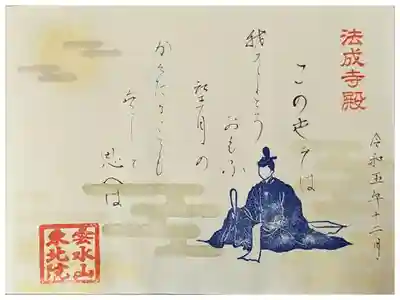 法成寺殿
令和五年十二月
このせをは
我かよとそ
おもふ
望月の
かけたることも
なしと
思へは
雲水山
東北院